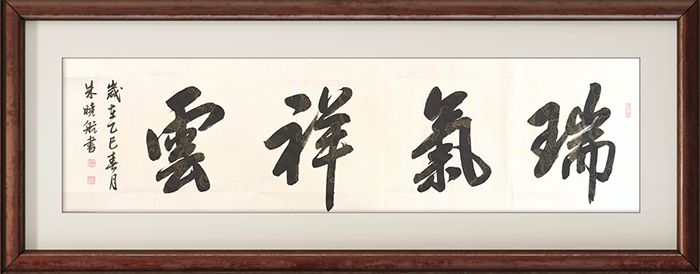 瑞氣祥雲
歲在乙巳春月
朱曉航書